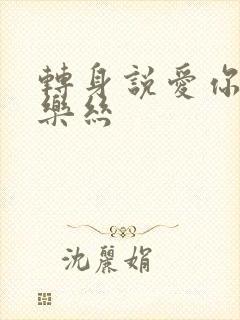 轉身說愛你
樂絲
沈麗娟